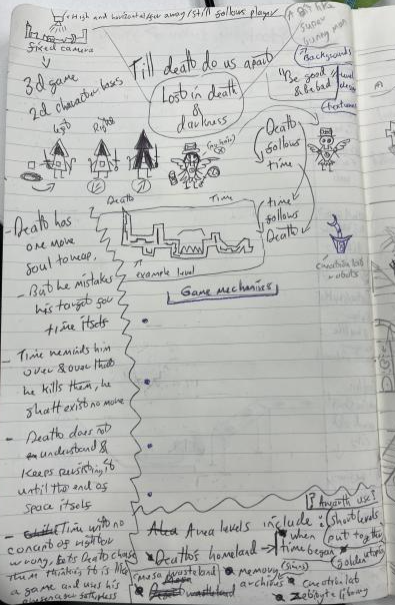 High and horizontal far away / still follows player
fixed camera
3d game
2d character bases
left
Right
Till death do us apart
Lost in death
&
darkness
A bit like
super
bunny man
Backgrounds
Be good
& bad
features
Death
follows
time
time
follows
Death
Death
Time
example level
Creation lab
robots
Game mechanics
- Death has
one more
soul to reap,
- But he mistakes
his target for
time itself
- Time reminds him
over & over that
he kills them, he
shall exist no more
- Death does not
understand &
keeps persisting it
until the end of
space itself
- Time with no
concept of right or
wrong, lets Death chase
them thinking it is like
a game and uses his
Area levels include:
Death's homeland
when
time began
Short levels
put together
golden story
wasteland
memory
archives
creation lab
library